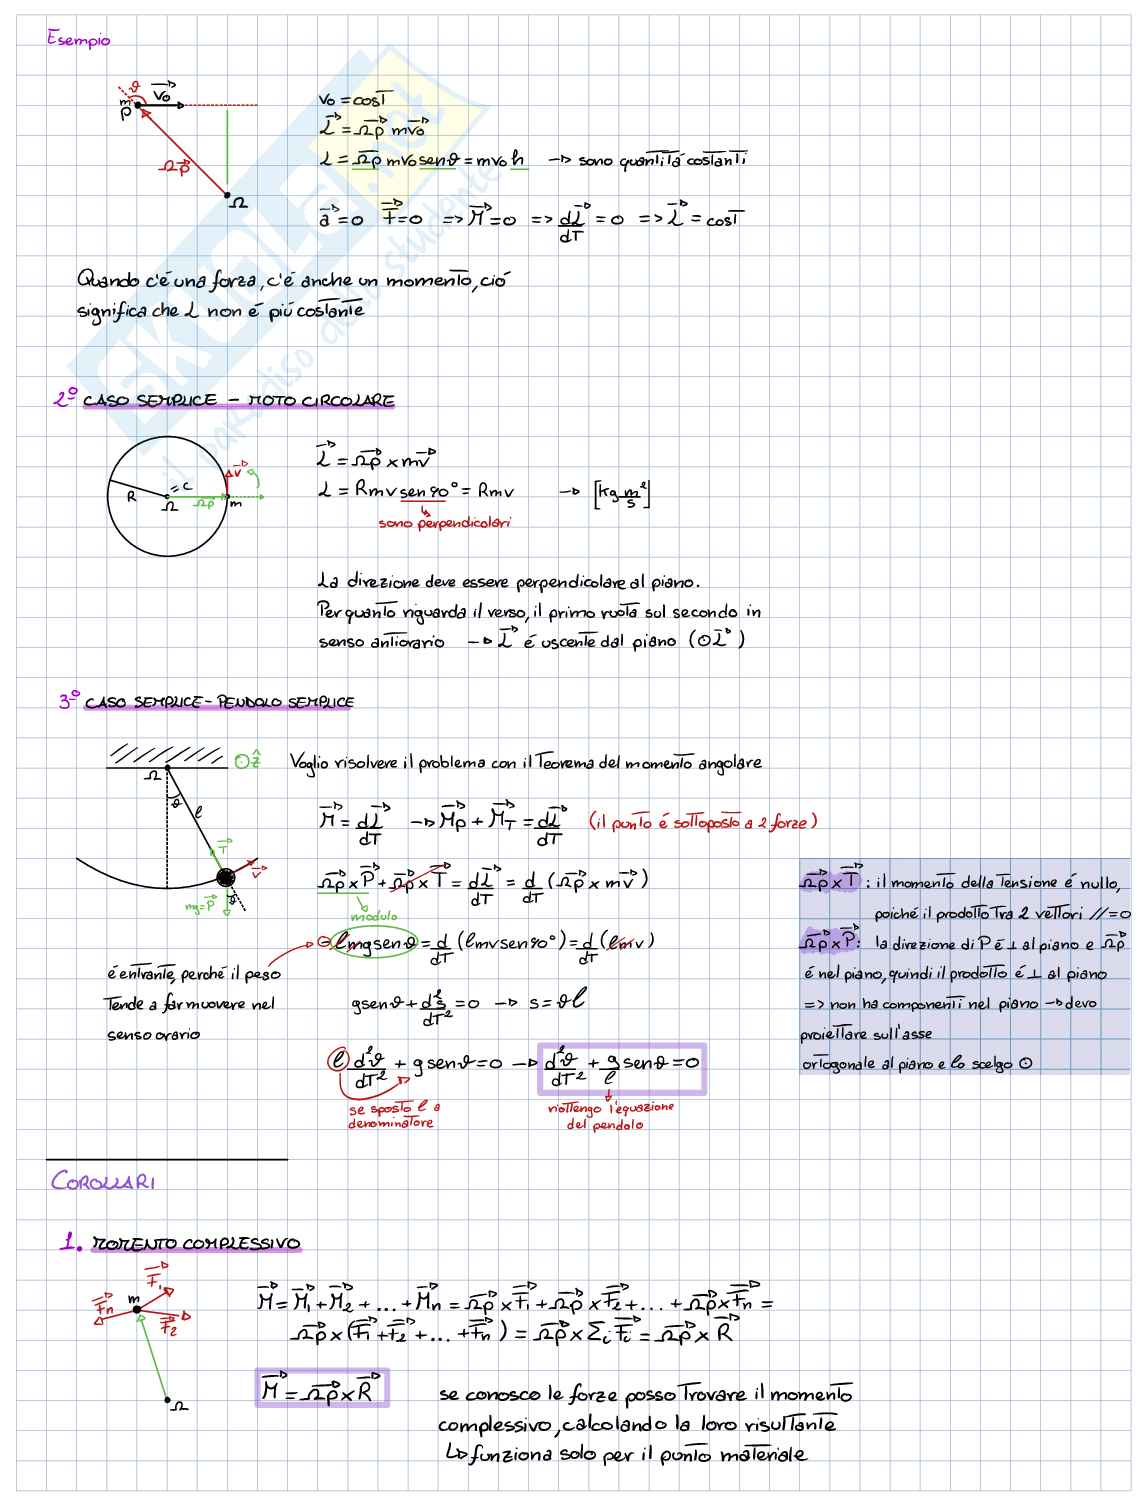 Esempio
ϑ
m
P
v⃗₀
Ωp⃗
Ω
v₀ = cost
L⃗ = Ωp⃗ mv⃗₀
L = Ωp mv₀ senϑ = mv₀ h → sono quantità costanti
a⃗ = 0 F⃗ = 0 => M⃗ = 0 => dL⃗/dt = 0 => L⃗ = cost
Quando c'é una forza, c'é anche un momento, ció
significa che L non é piú costante
SKUOLA.net
il paradiso dello studente
2° CASO SEMPLICE - MOTO CIRCOLARE
R
= C
Ω
Ωp⃗
v⃗
m
L⃗ = Ωp⃗ x mv⃗
L = Rmv sen 90° = Rmv → [kg m²/s]
sono perpendicolari
La direzione deve essere perpendicolare al piano.
Per quanto riguarda il verso, il primo ruota sul secondo in
senso antiorario → L⃗ é uscente dal piano (⊙L⃗)
3° CASO SEMPLICE - PENDOLO SEMPLICE
⊙ẑ
Ω
ϑ
l
T⃗
v⃗
mg = P⃗
ϑ
Voglio risolvere il problema con il Teorema del momento angolare
M⃗ = dL⃗/dt → M⃗p + M⃗T = dL⃗/dt (il punto é sottoposto a 2 forze)
Ωp⃗ x P⃗ + Ωp⃗ x T⃗ = dL⃗/dt = d/dt (Ωp⃗ x mv⃗)
modulo
⊖ lmg senϑ = d/dt (lmv sen 90°) = d/dt (lmv)
é entrante, perché il peso
tende a far muovere nel
senso orario
gsenϑ + d²s/dt² = 0 → s = ϑl
l d²ϑ/dt² + g senϑ = 0 → d²ϑ/dt² + g/l senϑ = 0
se sposto l a
denominatore
riottengo l'equazione
del pendolo
Ωp⃗ x T⃗ : il momento della tensione é nullo,
poiché il prodotto tra 2 vettori // = 0
Ωp⃗ x P⃗ : la direzione di P é ⊥ al piano e Ωp⃗
é nel piano, quindi il prodotto é ⊥ al piano
=> non ha componenti nel piano → devo
proiettare sull'asse
ortogonale al piano e lo scelgo ⊙
COROLLARI
1. MOMENTO COMPLESSIVO
F⃗₁
F⃗n
m
F⃗₂
Ω
M⃗ = M⃗₁ + M⃗₂ + ... + M⃗n = Ωp⃗ x F⃗₁ + Ωp⃗ x F⃗₂ + ... + Ωp⃗ x F⃗n =
Ωp⃗ x (F⃗₁ + F⃗₂ + ... + F⃗n) = Ωp⃗ x Σi F⃗i = Ωp⃗ x R⃗
M⃗ = Ωp⃗ x R⃗
se conosco le forze posso trovare il momento
complessivo, calcolando la loro risultante
↳ funziona solo per il punto materiale